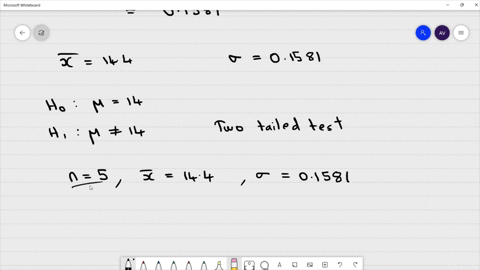 Microsoft Whiteboard
= 0.1581
x̄ = 14.4 σ = 0.1581
H₀ : μ = 14
H₁ : μ ≠ 14 Two tailed test
n = 5 , x̄ = 14.4 , σ = 0.1581
AV